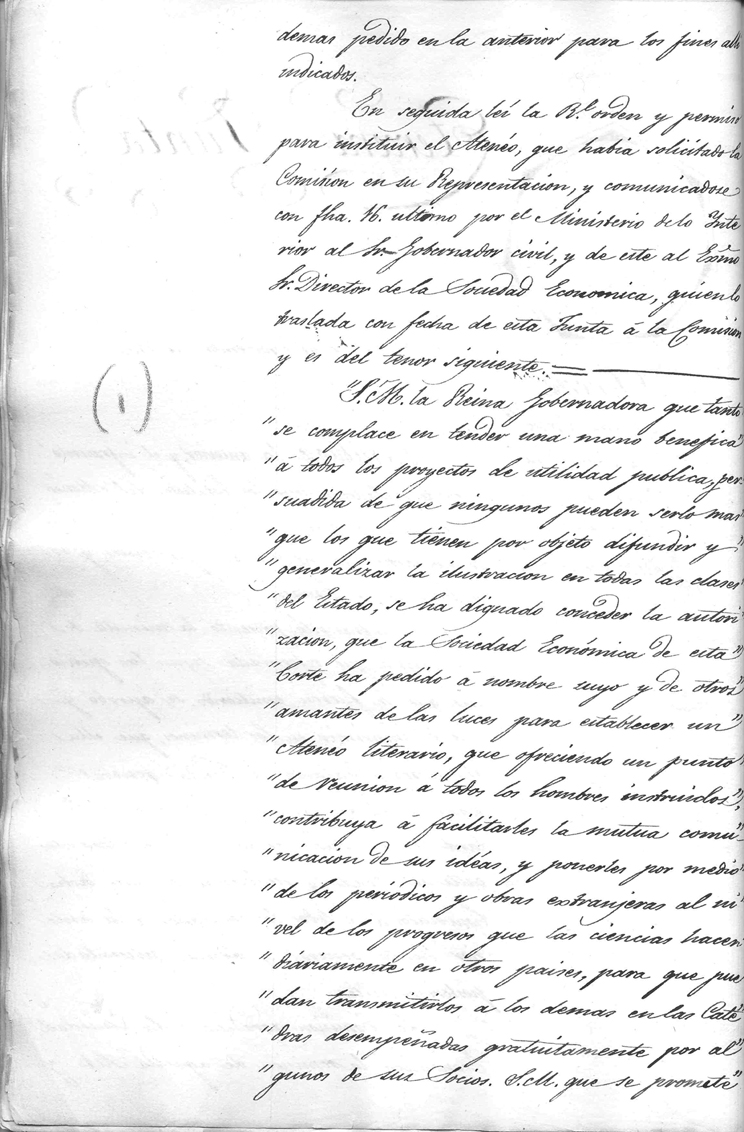 demas pedido en la anterior para los fines alli
indicados.
En seguida leí la Rl. orden y permiso
para instituir el Atenéo, que habia solicitado la
Comision en su Representacion, y comunicadose
con fha. 16. ultimo por el Ministerio de lo Inte
rior al Sr. Gobernador civil, y de este al Exmo
Sr. Director de la Sociedad Economica, quien lo
traslada con fecha de esta Junta á la Comision
y es del tenor siguiente. =
(1)
"S. M. la Reina Gobernadora que tanto
"se complace en tender una mano benefica"
"á todos los proyectos de utilidad publica, per-
"suadida de que ningunos pueden serlo mas"
"que los que tienen por objeto difundir y"
"generalizar la ilustracion en todas las clases
"del Estado, se ha dignado conceder la autori"
"zacion, que la Sociedad Económica de esta"
"Corte ha pedido á nombre suyo y de otros"
"amantes de las luces para establecer un"
"Atenéo literario, que ofreciendo un punto"
"de reunion á todos los hombres instruidos",
"contribuya á facilitarles la mutua comu"
"nicacion de sus idéas, y ponerles por medio"
"de los periódicos y obras extranjeras al ni"
"vel de los progresos que las ciencias hacen"
"diáriamente en otros paises, para que pue"
"dan transmitirlos á los demas en las Cate"
"dras desempeñadas gratuitamente por al"
"gunos de sus Socios. S. M. que se promete"